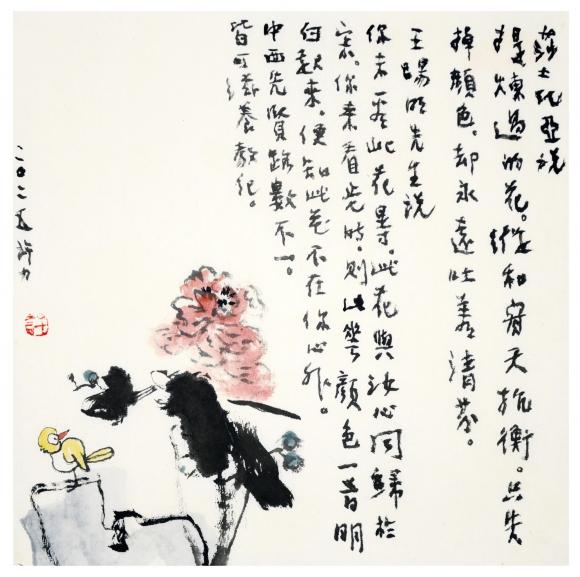 莎士比亞说
提煉過的花。縱和寒天抗衡。只失
掉顏色。却永遠吐清芬。
王陽明先生说
你未看此花時。此花與汝心同歸於
寂。你来看此時。則此花顏色一旹明
白起来。便知此花不在你心外。
中西先賢路數不一。
皆可滋養教化。
二〇二